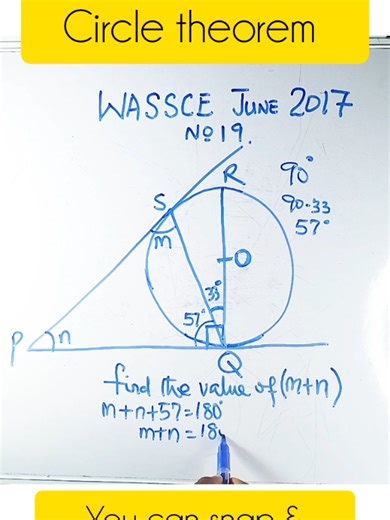 Circle theorem
WASSCE JUNE 2017
No 19.
R
90°
90-33
57°
S
m
O
33°
57°
P
n
Q
find the value of (m+n)
m+n+57=180°
m+n=18
You can snap &